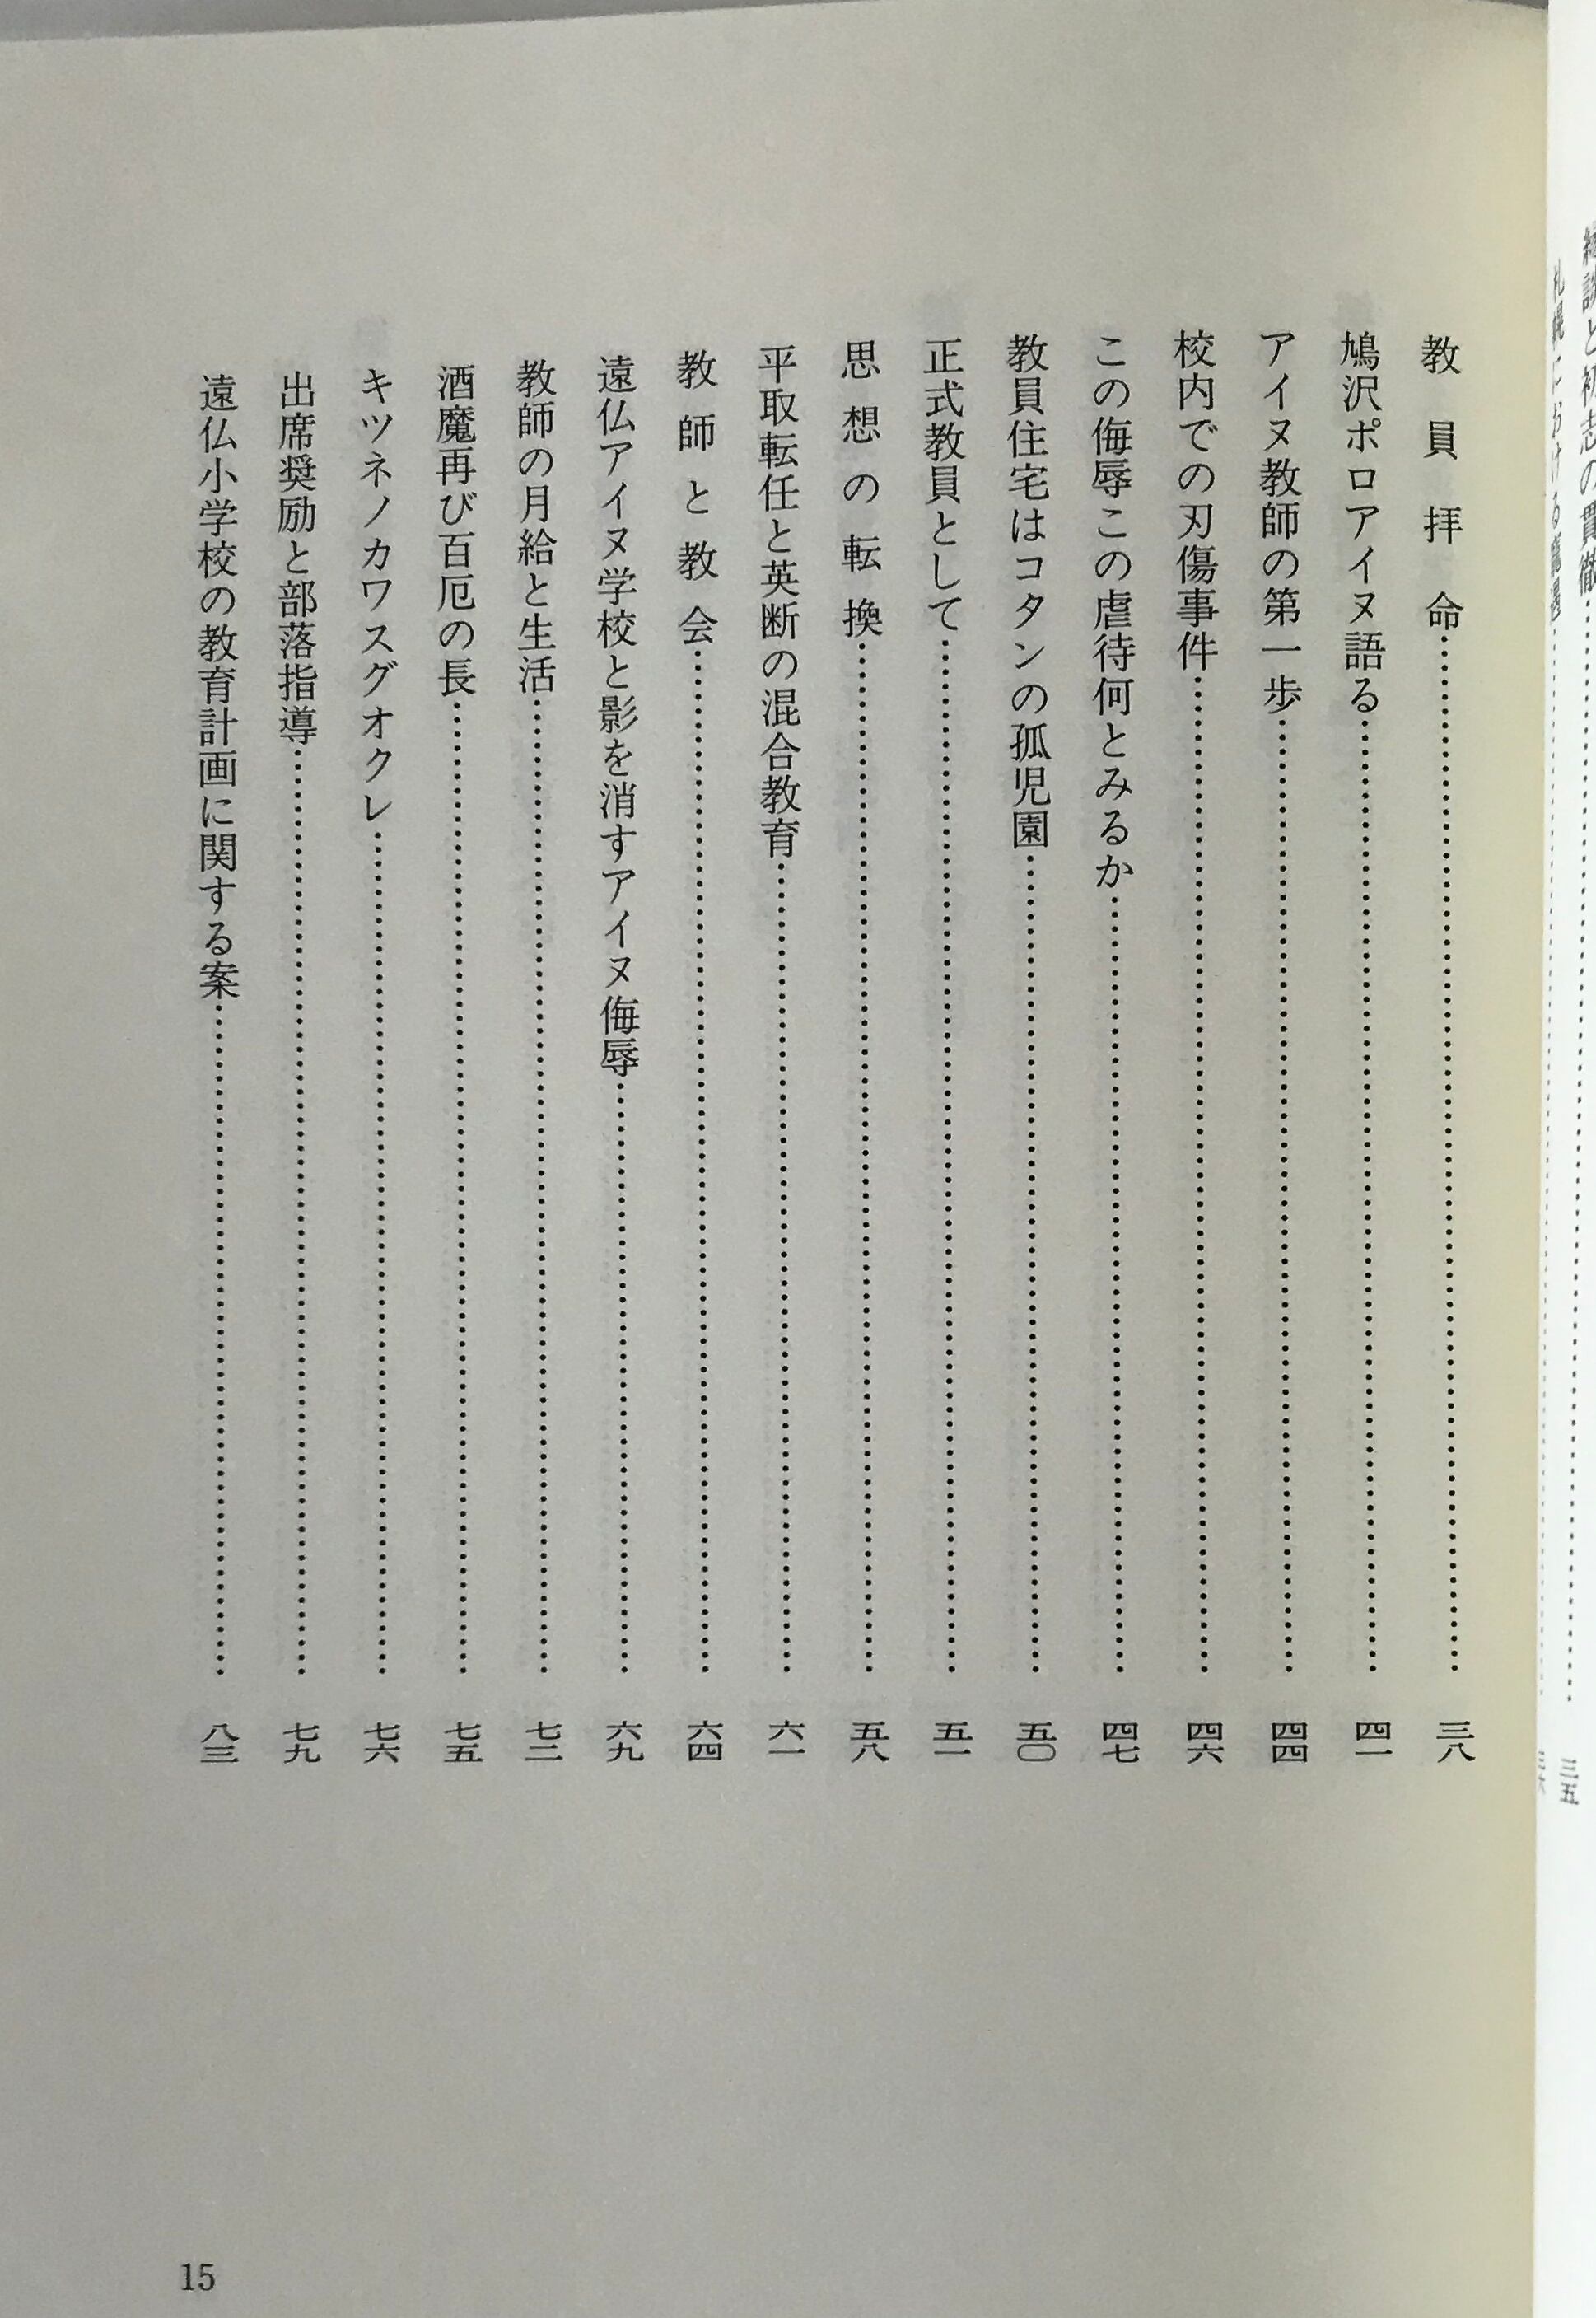 初志の貫徹……三五
教員拝命……三八
鳩沢ポロアイヌ語る……四一
アイヌ教師の第一歩……四四
校内での刃傷事件……四六
この侮辱この虐待何とみるか……四七
教員住宅はコタンの孤児園……五〇
正式教員として……五一
思想の転換……五八
平取転任と英断の混合教育……六一
教師と教会……六四
遠仏アイヌ学校と影を消すアイヌ侮辱……六九
教師の月給と生活……七二
酒魔再び百厄の長……七五
キツネノカワスグオクレ……七六
出席奨励と部落指導……七九
遠仏小学校の教育計画に関する案……八三
15